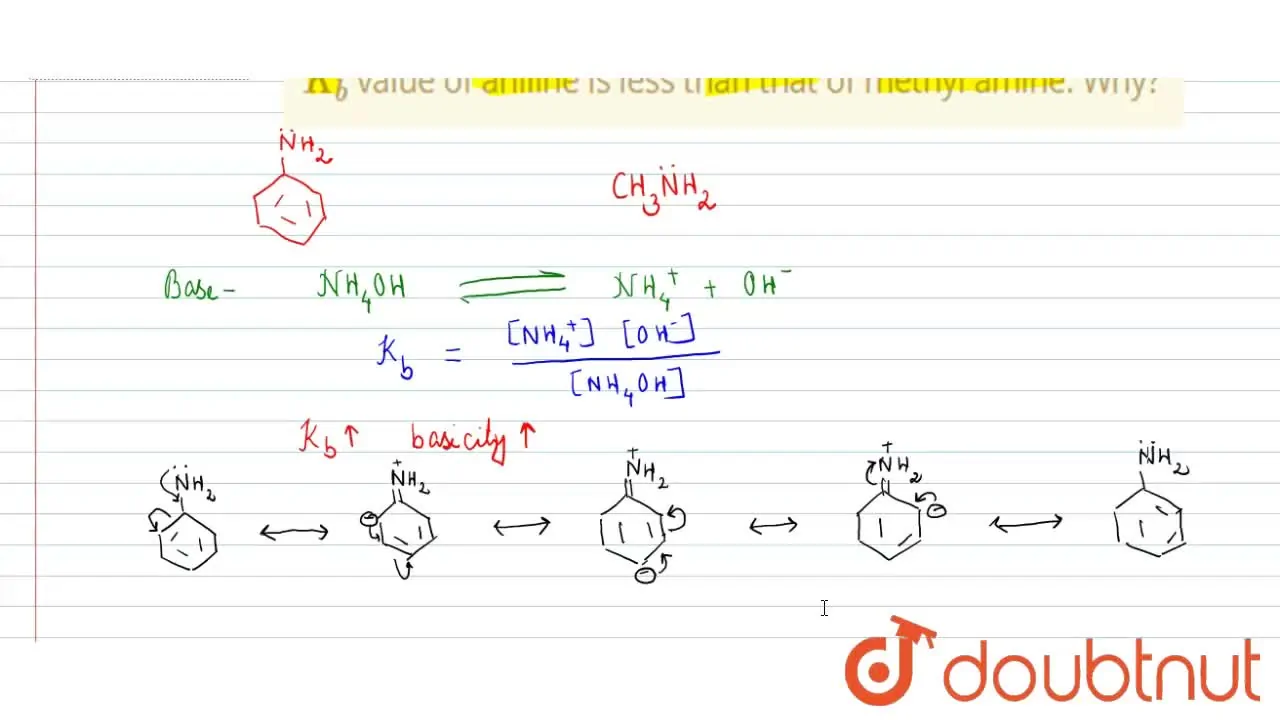 K_b value of aniline is less than that of methyl amine. Why?
N̈H₂
CH₃N̈H₂
Base - NH₄OH ⇌ NH₄⁺ + OH⁻
K_b = [NH₄⁺] [OH⁻] / [NH₄OH]
K_b ↑ basicity ↑
N̈H₂ ↔ ⁺NH₂ ⊖ ↔ ⁺NH₂ ⊖ ↔ ⁺NH₂ ⊖ ↔ N̈H₂
doubtnut